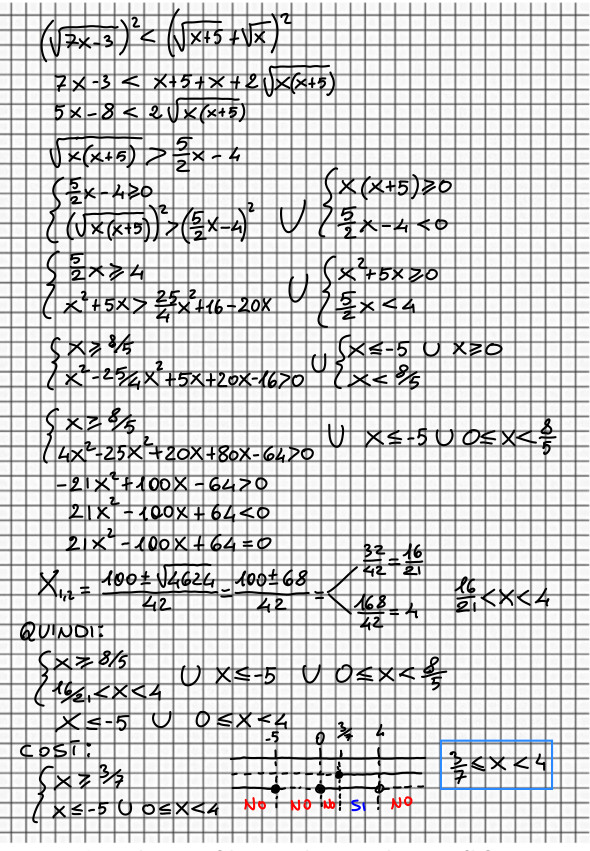 (√(7x-3))² < (√(x+5) + √x)²
7x-3 < x+5+x+2√(x(x+5))
5x-8 < 2√(x(x+5))
√(x(x+5)) > 5/2x - 4
{ 5/2x - 4 ≥ 0
(√(x(x+5)))² > (5/2x-4)²
∪
{ x(x+5) ≥ 0
5/2x - 4 < 0
{ 5/2x ≥ 4
x²+5x > 25/4x²+16-20x
∪
{ x²+5x ≥ 0
5/2x < 4
{ x ≥ 8/5
x²-25/4x²+5x+20x-16>0
∪
{ x ≤ -5 ∪ x ≥ 0
x < 8/5
{ x ≥ 8/5
4x²-25x²+20x+80x-64>0
∪ x ≤ -5 ∪ 0 ≤ x < 8/5
-21x²+100x-64>0
21x²-100x+64<0
21x²-100x+64=0
X₁,₂ = (100±√4624)/42 = (100±68)/42 =
32/42 = 16/21
168/42 = 4
16/21 < x < 4
QUINDI:
{ x ≥ 8/5
16/21 < x < 4
∪ x ≤ -5 ∪ 0 ≤ x < 8/5
x ≤ -5 ∪ 0 ≤ x < 4
COSÌ:
{ x ≥ 3/7
x ≤ -5 ∪ 0 ≤ x < 4
-5 0 3/7 4
NO NO NO SI NO
3/7 ≤ x < 4